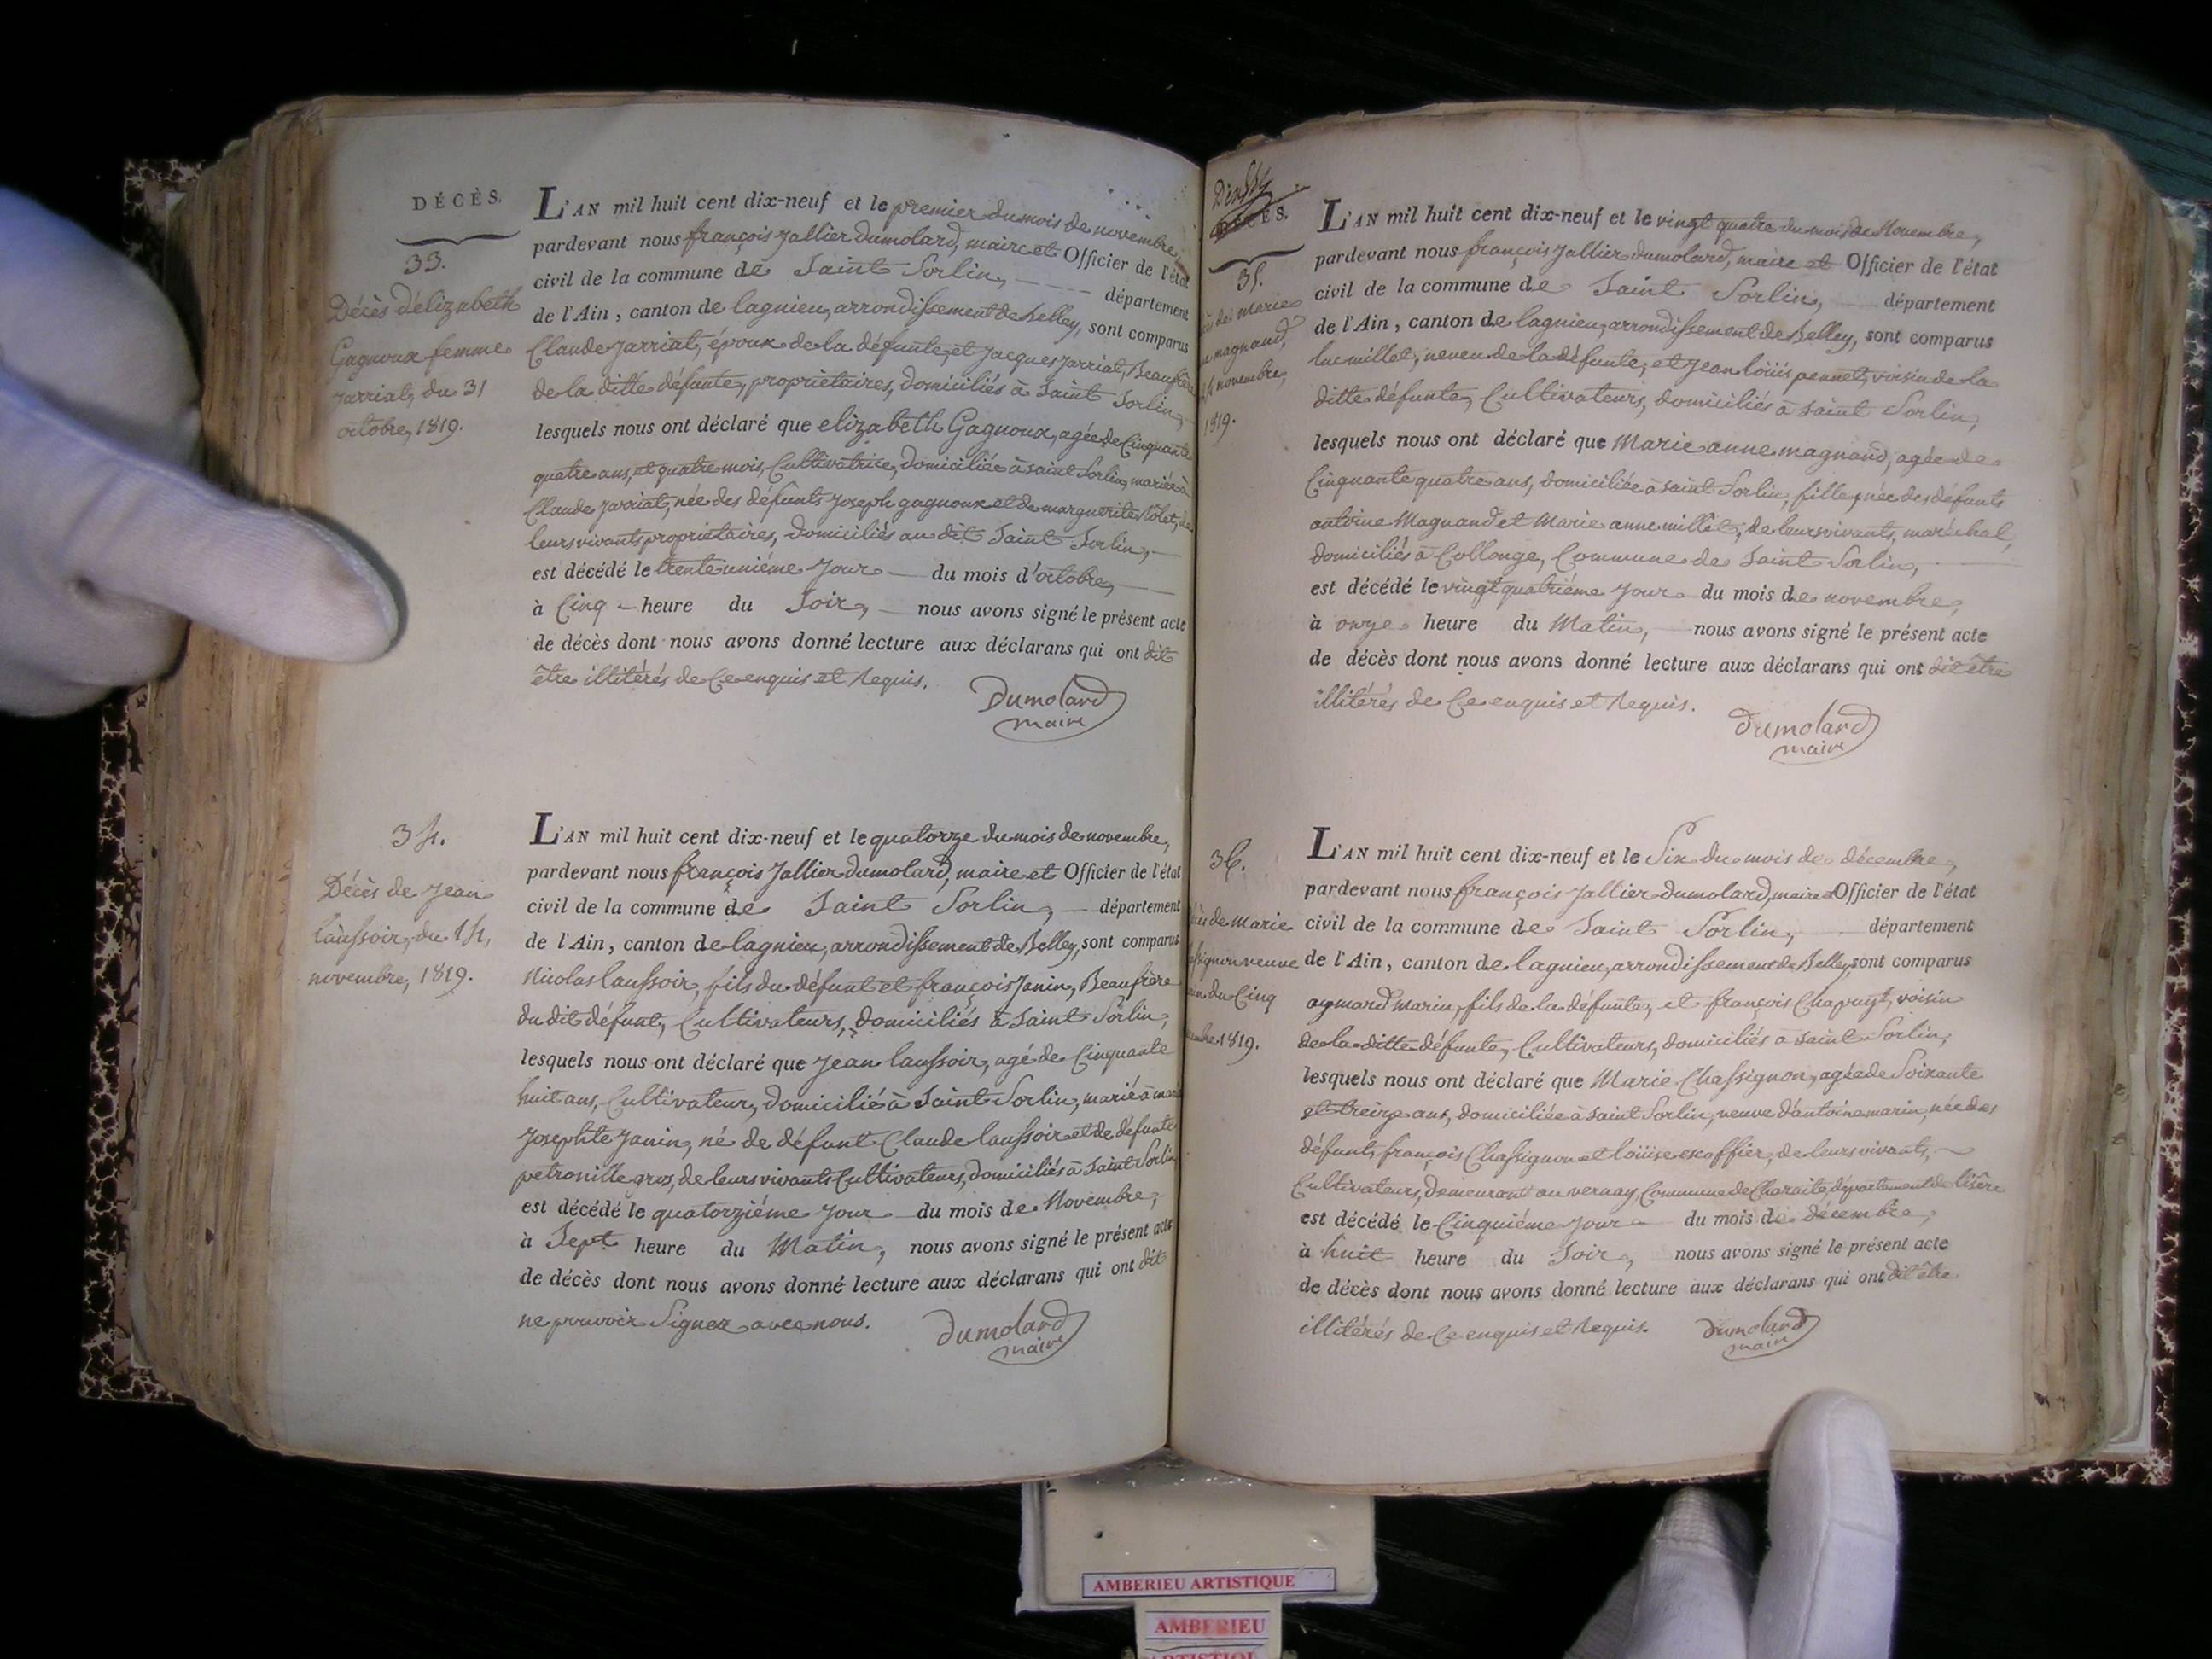 DÉCÈS.
33.
Décès d'élizabeth
Gagnoux femme
jarriat, du 31
octobre, 1819.
L'AN mil huit cent dix-neuf et le premier du mois de novembre,
pardevant nous françois Jallier dumolard, maire et Officier de l'état
civil de la commune de Saint Sorlin, département
de l'Ain, canton de lagnieu, arrondissement de Belley, sont comparus
Claude jarriat, époux de la défunte, et jacques jarriat, Beaufrère
de la ditte défunte, proprietaires, domiciliés à Saint Sorlin,
lesquels nous ont déclaré que elizabeth Gagnoux, agée de Cinquante
quatre ans, et quatre mois, Cultivatrice, domiciliée à saint Sorlin, mariée à
Claude jarriat, née des défunts joseph gagnoux et de marguerite de
leurs vivants proprietaires, domiciliés au dit Saint Sorlin,
est décédé le trente uniéme jour du mois d'octobre,
à Cinq heure du Soir, nous avons signé le présent acte
de décès dont nous avons donné lecture aux déclarans qui ont dit
être illitérés de Ce enquis et Requis.
Dumolard
maire
34.
Décès de jean
laussoir, du 14,
novembre, 1819.
L'AN mil huit cent dix-neuf et le quatorze du mois de novembre,
pardevant nous françois Jallier dumolard, maire et Officier de l'état
civil de la commune de Saint Sorlin, département
de l'Ain, canton de lagnieu, arrondissement de Belley, sont comparus
Nicolas laussoir, fils du défunt et françois janin, Beaufrère
du dit défunt, Cultivateurs, domiciliés à Saint Sorlin,
lesquels nous ont déclaré que jean laussoir, agé de Cinquante
huit ans, Cultivateur, domicilié à Saint Sorlin, marié à
josephte janin, né de défunt Claude laussoir et de défunte
petronille gros, de leurs vivants Cultivateurs, domiciliés à Saint Sorlin
est décédé le quatorziéme jour du mois de Novembre,
à Sept heure du Matin, nous avons signé le présent acte
de décès dont nous avons donné lecture aux déclarans qui ont dit
ne pouvoir Signer avec nous.
dumolard
maire
DÉCÈS.
35.
de marie
magnand,
novembre,
1819.
L'AN mil huit cent dix-neuf et le vingt quatre du mois de Novembre,
pardevant nous françois Jallier dumolard, maire et Officier de l'état
civil de la commune de Saint Sorlin, département
de l'Ain, canton de lagnieu, arrondissement de Belley, sont comparus
luc millet, neveu de la défunte, et jean loüis pennet, voisin de la
ditte défunte, Cultivateurs, domiciliés à saint Sorlin,
lesquels nous ont déclaré que Marie anne magnand, agée de
Cinquante quatre ans, domiciliée à saint Sorlin, fille, née des défunts
antoine Magnand et Marie anne millet, de leurs vivants, maréchal,
domiciliés à Collonge, Commune de Saint Sorlin,
est décédé le vingt quatriéme jour du mois de novembre,
à onze heure du Matin, nous avons signé le présent acte
de décès dont nous avons donné lecture aux déclarans qui ont dit être
illitérés de Ce enquis et Requis.
dumolard
maire
36.
de Marie
veuve
du Cinq
1819.
L'AN mil huit cent dix-neuf et le Six du mois de décembre,
pardevant nous françois Jallier dumolard, maire et Officier de l'état
civil de la commune de Saint Sorlin, département
de l'Ain, canton de lagnieu, arrondissement de Belley, sont comparus
aymard marin, fils de la défunte, et françois Chapuyt, voisin
de la ditte défunte, Cultivateurs, domiciliés à saint Sorlin,
lesquels nous ont déclaré que Marie Chassignon, agée de Soixante
et treize ans, domiciliée à saint Sorlin, veuve d'antoine marin, née des
défunts françois Chassignon et loüise escoffier, de leurs vivants,
Cultivateurs, demeurant au vernay, Commune de Charaite, département de l'isère
est décédé le Cinquiéme jour du mois de décembre,
à huit heure du Soir, nous avons signé le présent acte
de décès dont nous avons donné lecture aux déclarans qui ont dit être
illitérés de Ce enquis et Requis.
dumolard
maire
AMBERIEU ARTISTIQUE
AMBERIEU
ARTISTIQUE